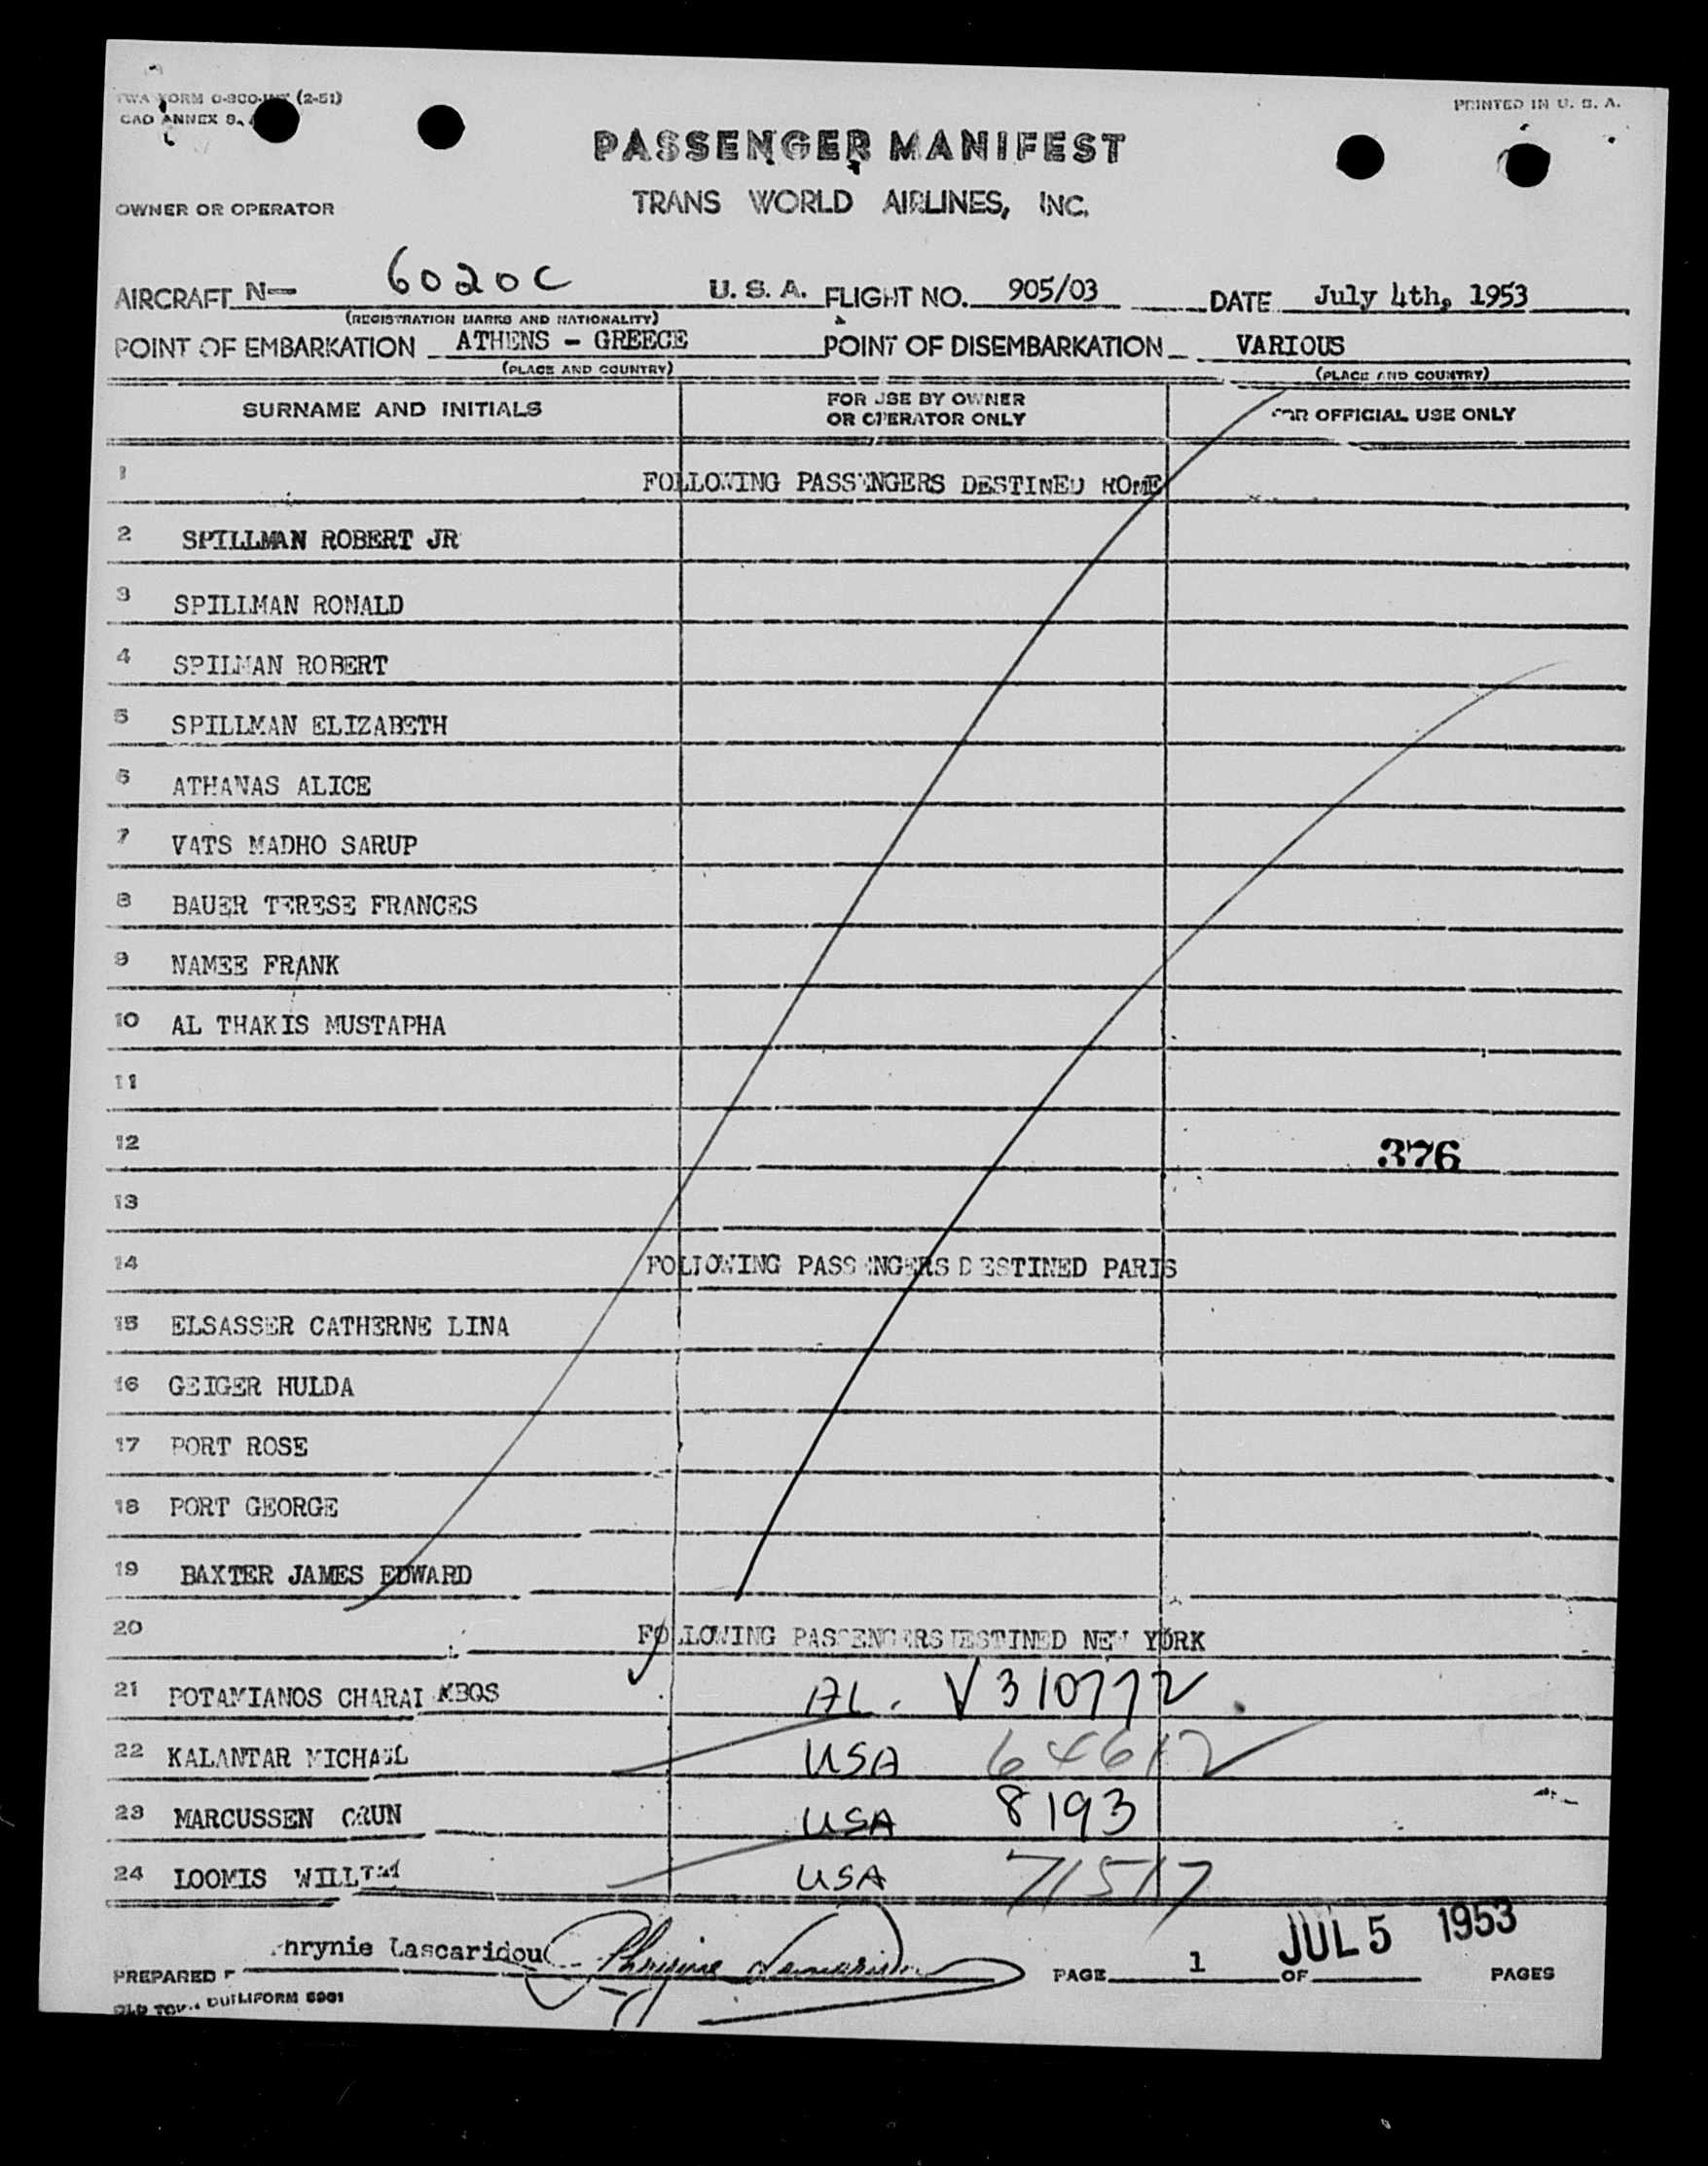 TWA FORM (2-51)
PRINTED IN U. S. A.
CAO ANNEX 9,
PASSENGER MANIFEST
OWNER OR OPERATOR
TRANS WORLD AIRLINES, INC.
AIRCRAFT N- 6020C U. S. A. FLIGHT NO. 905/03 DATE July 4th, 1953
(REGISTRATION MARKS AND NATIONALITY)
POINT OF EMBARKATION ATHENS - GREECE POINT OF DISEMBARKATION VARIOUS
(PLACE AND COUNTRY) (PLACE AND COUNTRY)
SURNAME AND INITIALS FOR USE BY OWNER OR OPERATOR ONLY FOR OFFICIAL USE ONLY
1 FOLLOWING PASSENGERS DESTINED ROME
2 SPILLMAN ROBERT JR
3 SPILLMAN RONALD
4 SPILMAN ROBERT
5 SPILLMAN ELIZABETH
6 ATHANAS ALICE
7 VATS MADHO SARUP
8 BAUER TERESE FRANCES
9 NAMEE FRANK
10 AL THAKIS MUSTAPHA
11
12 376
13
14 FOLLOWING PASSENGERS DESTINED PARIS
15 ELSASSER CATHERNE LINA
16 GEIGER HULDA
17 PORT ROSE
18 PORT GEORGE
19 BAXTER JAMES EDWARD
20 FOLLOWING PASSENGERS DESTINED NEW YORK
21 POTAMIANOS CHARALAMBOS AL. V310772
22 KALANTAR MICHAEL USA 64612
23 MARCUSSEN ORUN USA 8193
24 LOOMIS WILLIAM USA 71517
JUL 5 1953
Phrynie Lascaridou Phrynie Lascaridou
PREPARED PAGE 1 OF PAGES
OLD TOWN DUPLIFORM 6901